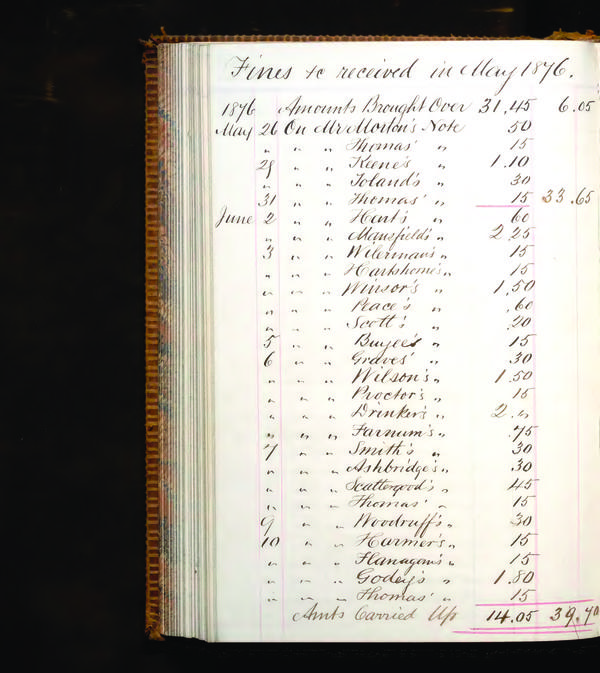 Fines &c received in May 1876.
1876 Amounts Brought Over 31,45 6.05
May 26 On Mr Morton's Note 50
" " " Thomas' " 15
29 " " Keene's " 1.10
" " " Toland's " 30
31 " " Thomas' " 15 33.65
June 2 " " Hart's " 60
" " " Mansfield's " 2.25
3 " " Wilerman's " 15
" " " Hartshorne's " 15
" " " Winsor's " 1.50
" " " Peace's " .60
" " " Scott's " .20
5 " " 15
6 " " Graves' " .30
" " " Wilson's " 1.50
" " " Proctor's " 15
" " " Drinker's " 2."
" " " Farnum's " .75
7 " " Smith's " 30
" " " Ashbridge's " 30
" " " Scattergood's " 45
" " " Thomas' " 15
9 " " Woodruff's " 30
10 " " Harmer's " 15
" " " Flanagan's " 15
" " " Godey's " 1.80
" " " Thomas' " 15
Amts Carried Up 14.05 39.70